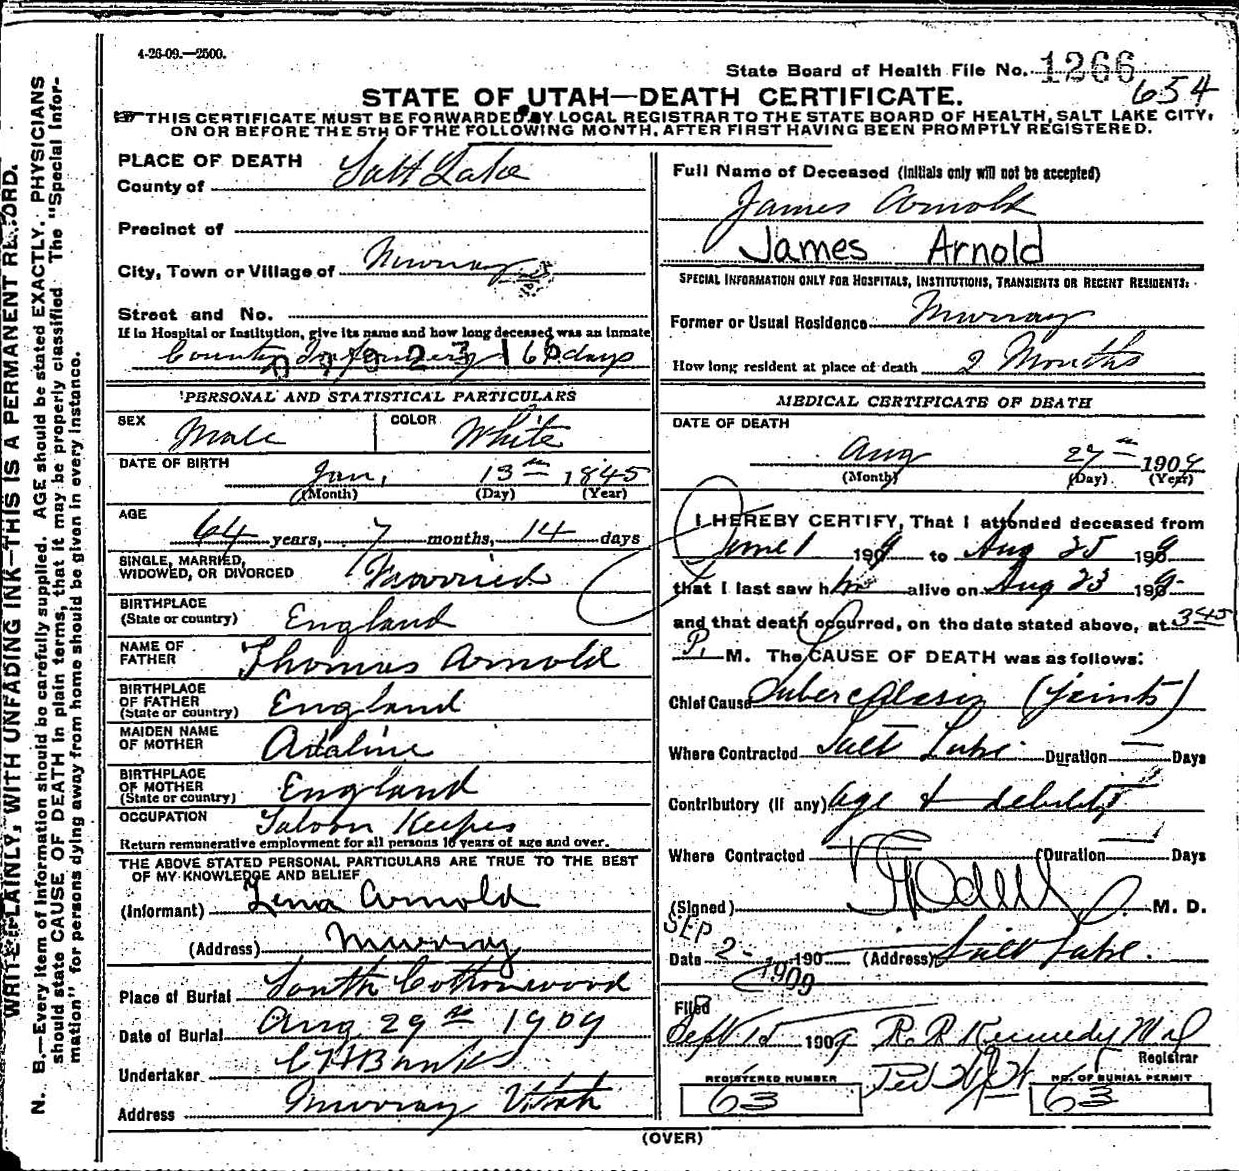 4-26-09.—2500.
State Board of Health File No. 1266
654
STATE OF UTAH—DEATH CERTIFICATE.
THIS CERTIFICATE MUST BE FORWARDED BY LOCAL REGISTRAR TO THE STATE BOARD OF HEALTH, SALT LAKE CITY,
ON OR BEFORE THE 5TH OF THE FOLLOWING MONTH, AFTER FIRST HAVING BEEN PROMPTLY REGISTERED.
WRITE PLAINLY, WITH UNFADING INK—THIS IS A PERMANENT RECORD.
N. B.—Every item of information should be carefully supplied. AGE should be stated EXACTLY. PHYSICIANS
should state CAUSE OF DEATH in plain terms, that it may be properly classified. The "Special Infor-
mation" for persons dying away from home should be given in every instance.
PLACE OF DEATH
County of Salt Lake
Precinct of
City, Town or Village of Murray
Street and No.
If in Hospital or Institution, give its name and how long deceased was an inmate
County Infirmary days
PERSONAL AND STATISTICAL PARTICULARS
SEX Male COLOR White
DATE OF BIRTH
Jan, 13th 1845
(Month) (Day) (Year)
AGE
64 years, 7 months, 14 days
SINGLE, MARRIED,
WIDOWED, OR DIVORCED Married
BIRTHPLACE
(State or country) England
NAME OF
FATHER Thomas Arnold
BIRTHPLACE
OF FATHER
(State or country) England
MAIDEN NAME
OF MOTHER Adaline
BIRTHPLACE
OF MOTHER
(State or country) England
OCCUPATION Saloon Keeper
Return remunerative employment for all persons 10 years of age and over.
THE ABOVE STATED PERSONAL PARTICULARS ARE TRUE TO THE BEST
OF MY KNOWLEDGE AND BELIEF
(Informant) Lena Arnold
(Address) Murray
Place of Burial South Cottonwood
Date of Burial Aug 29th 1909
Undertaker Banks
Address Murray Utah
Full Name of Deceased (Initials only will not be accepted)
James Arnold
James Arnold
SPECIAL INFORMATION ONLY FOR HOSPITALS, INSTITUTIONS, TRANSIENTS OR RECENT RESIDENTS:
Former or Usual Residence Murray
How long resident at place of death 2 Months
MEDICAL CERTIFICATE OF DEATH
DATE OF DEATH
Aug 27th 1909
(Month) (Day) (Year)
I HEREBY CERTIFY, That I attended deceased from
June 1 1909 to Aug 25 1909
that I last saw him alive on Aug 23 1909
and that death occurred, on the date stated above, at 3:45
P. M. The CAUSE OF DEATH was as follows:
Chief Cause Tuberculosis (joints)
Where Contracted Salt Lake Duration — Days
Contributory (if any) Age & debility
Where Contracted Duration — Days
(Signed) M. D.
SEP
Date 2 190 (Address) Salt Lake.
1909
Filed
Sept 15 1909 R. R. Kennedy MD
Registrar
REGISTERED NUMBER
63
NO. OF BURIAL PERMIT
63
(OVER)